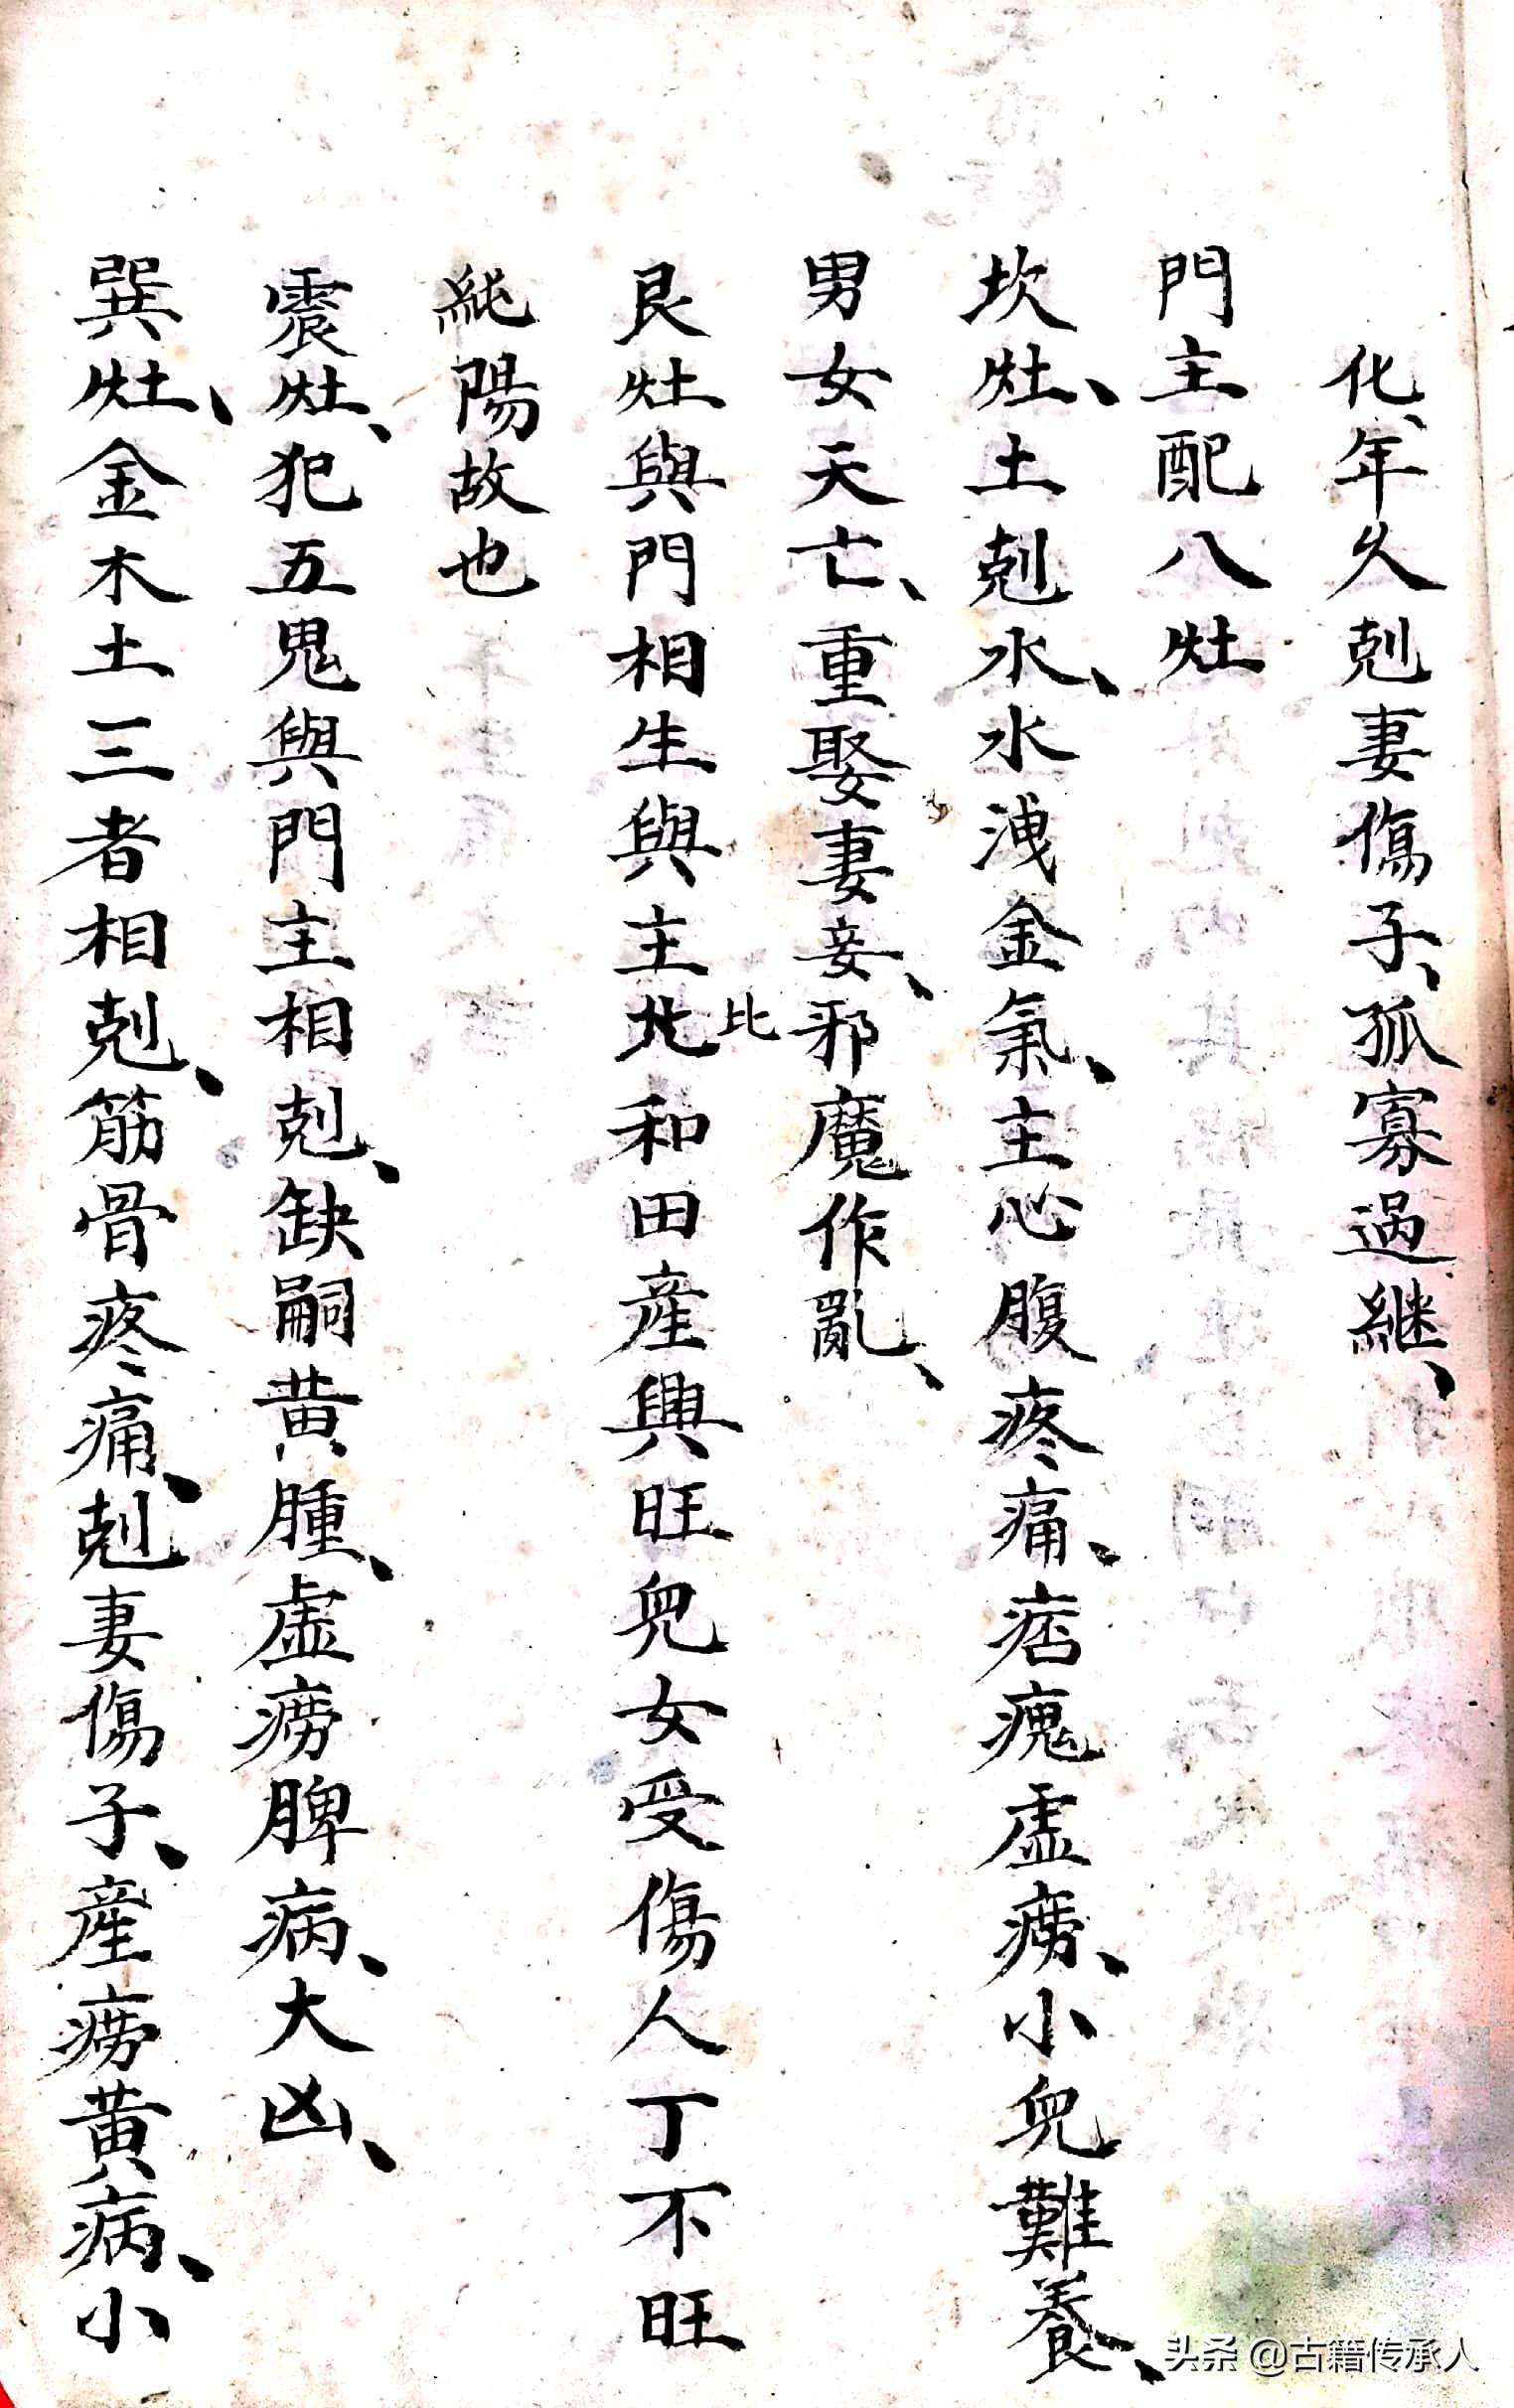 化、年久剋妻傷子、孤寡過継、
門主配八灶
坎灶、土剋水、水洩金氣、主心腹疼痛、痞瘣虛痨、小兒難養、
男女夭亡、重娶妻妾、邪魔作亂、
艮灶與門相生與主北和田産興旺兒女受傷人丁不旺
比
純陽故也
震灶、犯五鬼與門主相剋、缺嗣黃腫、虛痨脾病、大凶、
巽灶、金木土三者相剋、筋骨疼痛、剋妻傷子、産痨黃病、小
头条 @古籍传承人